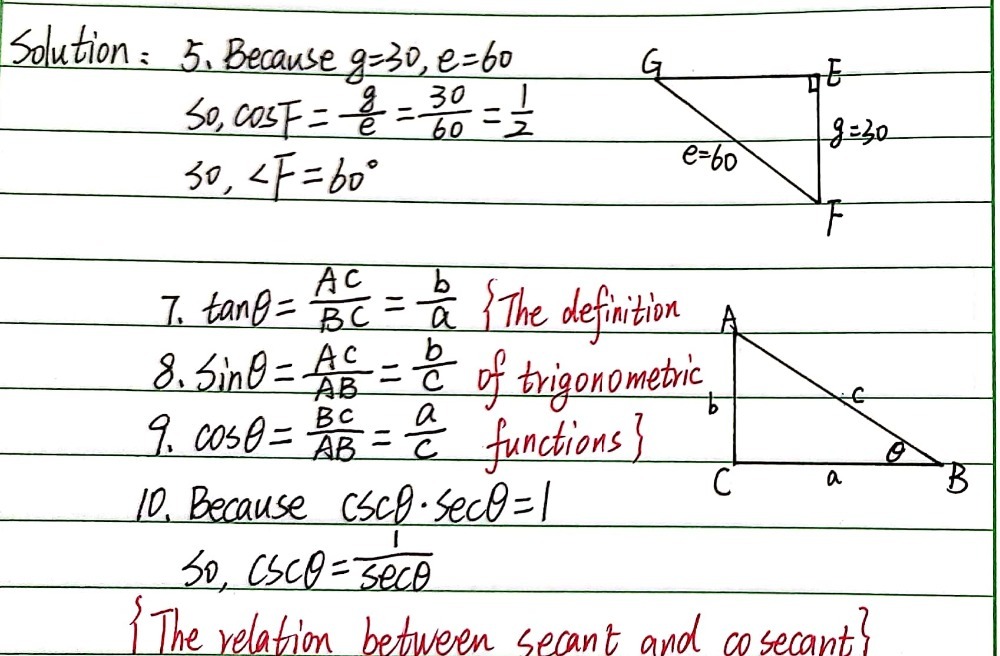 Solution: 5. Because g=30, e=60
So, cosF = g/e = 30/60 = 1/2
So, ∠F = 60°
G
E
g=30
e=60
F
7. tanθ = AC/BC = b/a {The definition
8. Sinθ = AC/AB = b/c of trigonometric
9. cosθ = BC/AB = a/c functions}
A
b
c
θ
C
a
B
10. Because cscθ·secθ=1
So, cscθ = 1/secθ
{The relation between secant and cosecant}